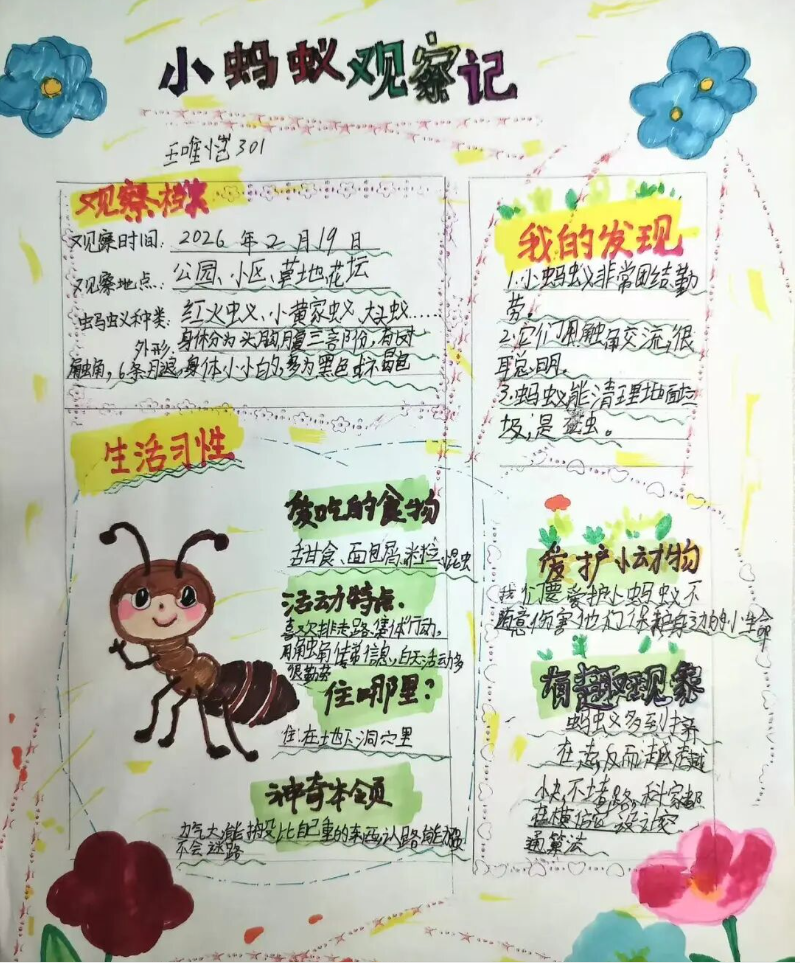 小蚂蚁观察记
王唯恺301
观察档案
观察时间: 2026年2月19日
观察地点: 公园、小区、草地、花坛
蚂蚁种类: 红火蚁、小黄家蚁、大头蚁.....
外形: 身体分为头胸腹三部份,有对
触角,6条腿,身体小小的,多为黑色或褐色
我的发现
1.小蚂蚁非常团结勤
劳。
2.它们用触角交流,很
聪明。
3.蚂蚁能清理地面垃
圾,是益虫。
生活习性
爱吃的食物
甜食、面包屑、米粒、昆虫
活动特点.
喜欢排走路、集体行动,
用触角传递信息,白天活动多
很勤劳
住哪里?
住在地下洞穴里
神奇本领
力气大,能搬比自己重的东西,认路能力强
不会迷路
爱护小动物
我们要爱护小蚂蚁不
随意伤害他们保护身边的小生命
有趣现象
蚂蚁多到挤
在一起,反而越走越
快,不堵路,科学家都
在模仿它设计交
通算法